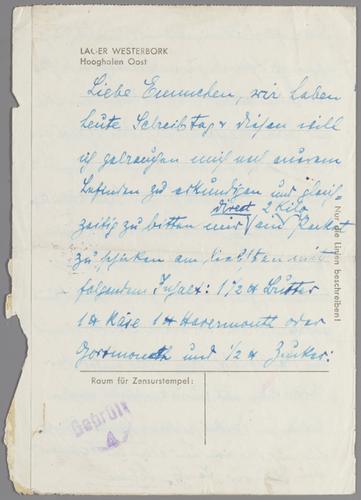 LAGER WESTERBORK
Hooghalen Oost
Liebe Emmchen, wir haben
heute Schreibtag & diesen will
ich gebrauchen mich nach eurem
Befinden zu erkundigen und gleich
zeitig zu bitten mir direct 2 Kilo
ein Paket
zu schicken am liebsten mit
folgendem Inhalt: 1/2 ℔ Butter
1 ℔ Käse 1 ℔ Havermouth oder
Gortmouth und 1/2 ℔ Zucker:
Nur die Linien beschreiben!
Raum für Zensurstempel:
Geprüft
4